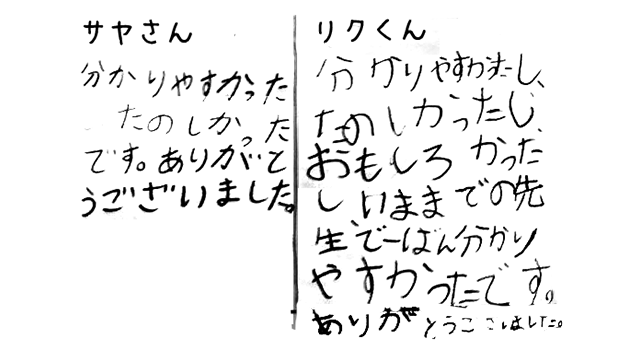 サヤさん
分かりやすかった
たのしかった
です。ありがと
うございました。
リクくん
分かりやすかたし、
たのしかったし、
おもしろかった
し、いままでの先
生、で一ばん分かり
やすかったです。
ありがとうここいました。